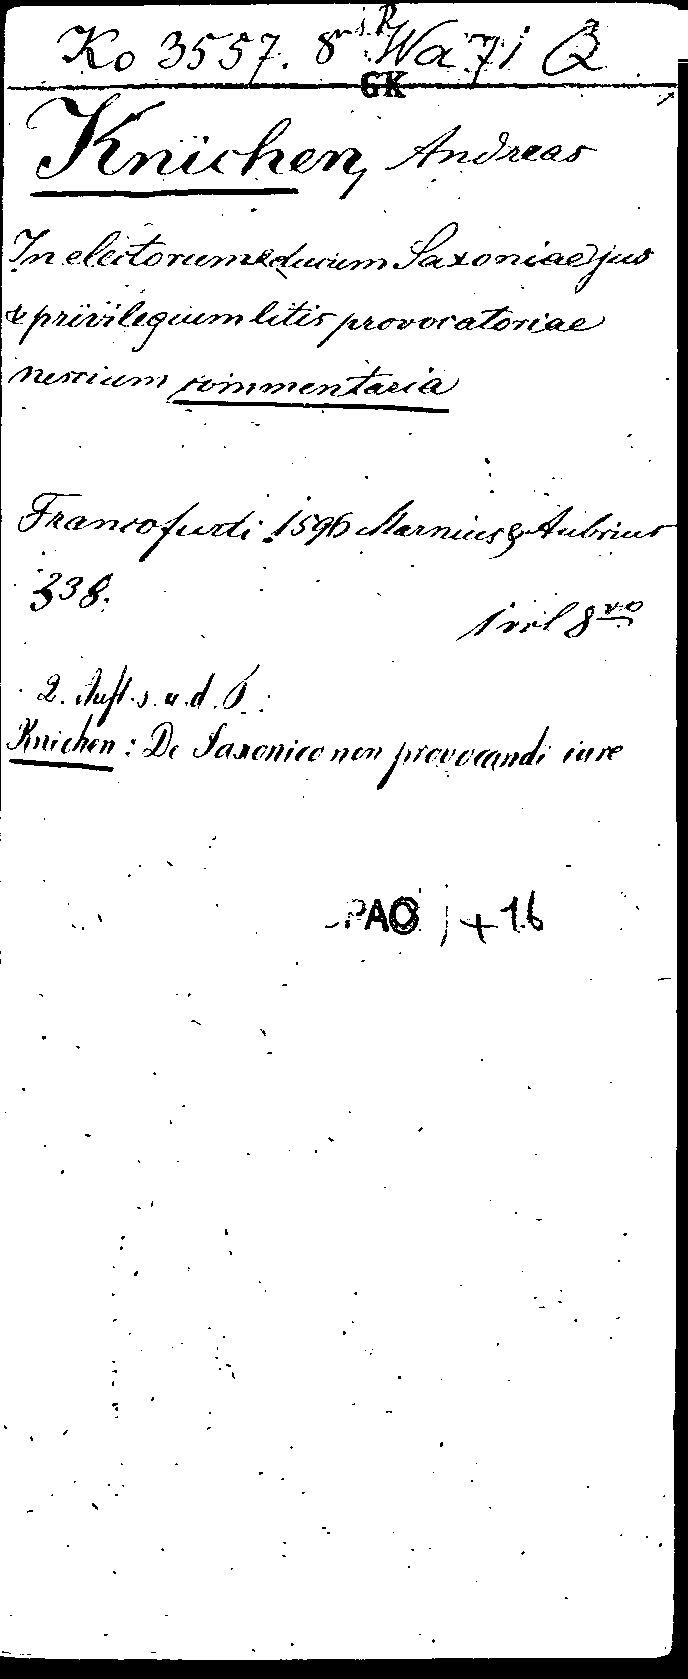 Ko 3557. 8 R Wa 71
GK
Knichen, Andreas
In electorum & ducum Saxoniae jus
& privilegium litis provocatoriae
nescium commentaria
Francofurdi 1596 Marnius & Aubrius
338.
1 vol 8vo
2. Aufl. s. u. d. T.:
Knichen: De Saxonico non provocandi iure
PAO + 16